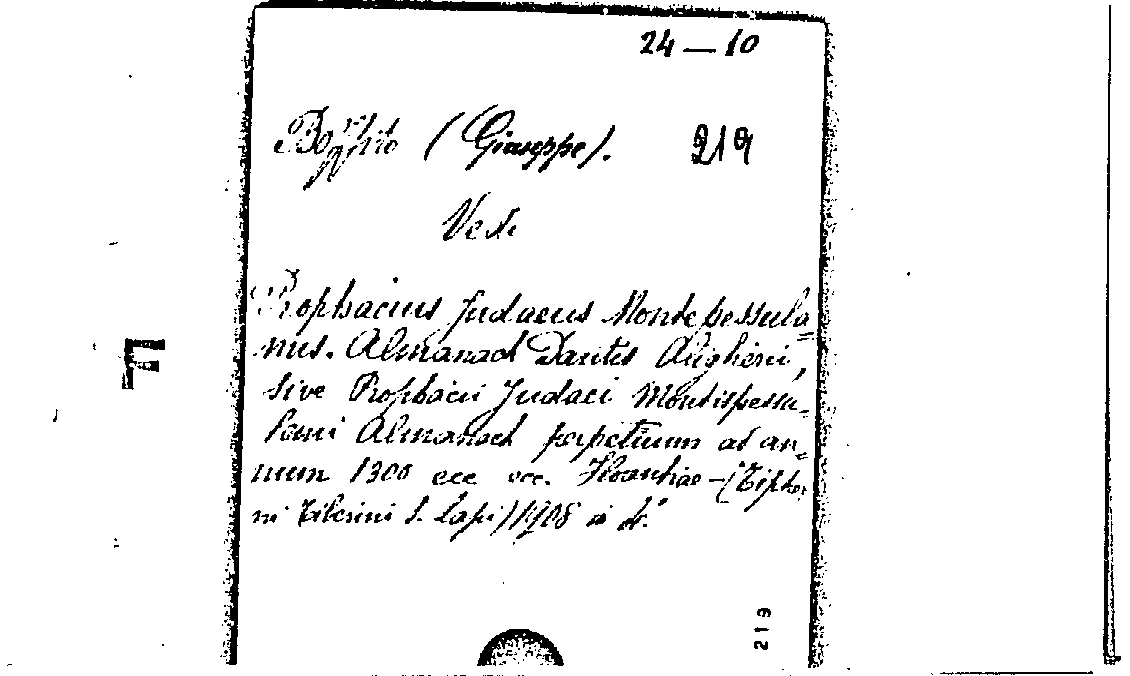 24 — 10
Boffito (Giuseppe). 219
Vedi
Prophacius Judaeus Montepessula=
nus. Almanach Dantis Aligherii,
sive Prophacii Judaei Montispessu=
lani Almanach perpetuum ad an=
num 1300 ecc ecc. Florentiae -(Tipher
ni Tiberini S. Lapi) 1908 in 4º.
F
219